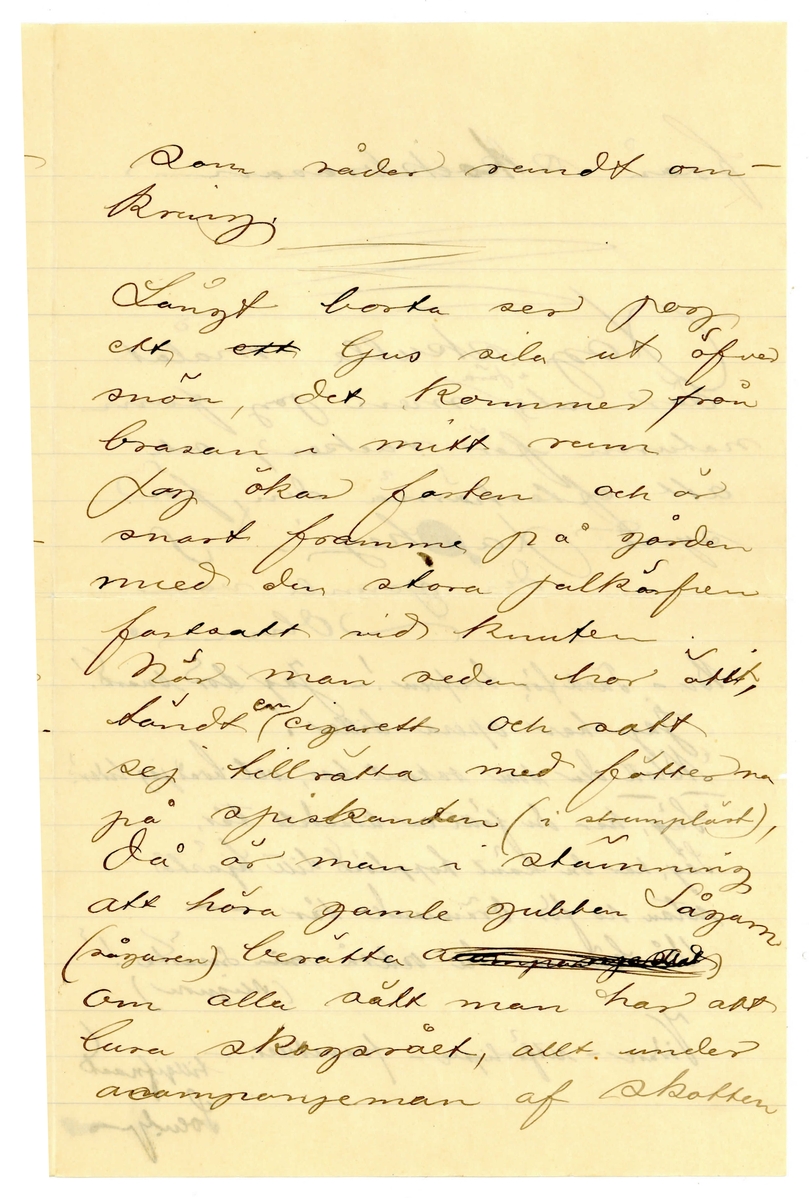 som råder rundt om-
kring.
Långt borta ser jag
ett ett ljus sila ut öfver
snön, det kommer från
brasan i mitt rum
Jag ökar farten och är
snart framme på gården
med den stora julkärfven
fastsatt vid knuten.
När man sedan har ätit,
tändt en cigarett och satt
sej tillrätta med fötterna
på spiskanten (i strumpläst),
då är man i stämning
att höra gamle gubben Sågarn
(sågaren) berätta
om alla sätt man har att
lura skogsrået, allt under
acompanjeman af skotten